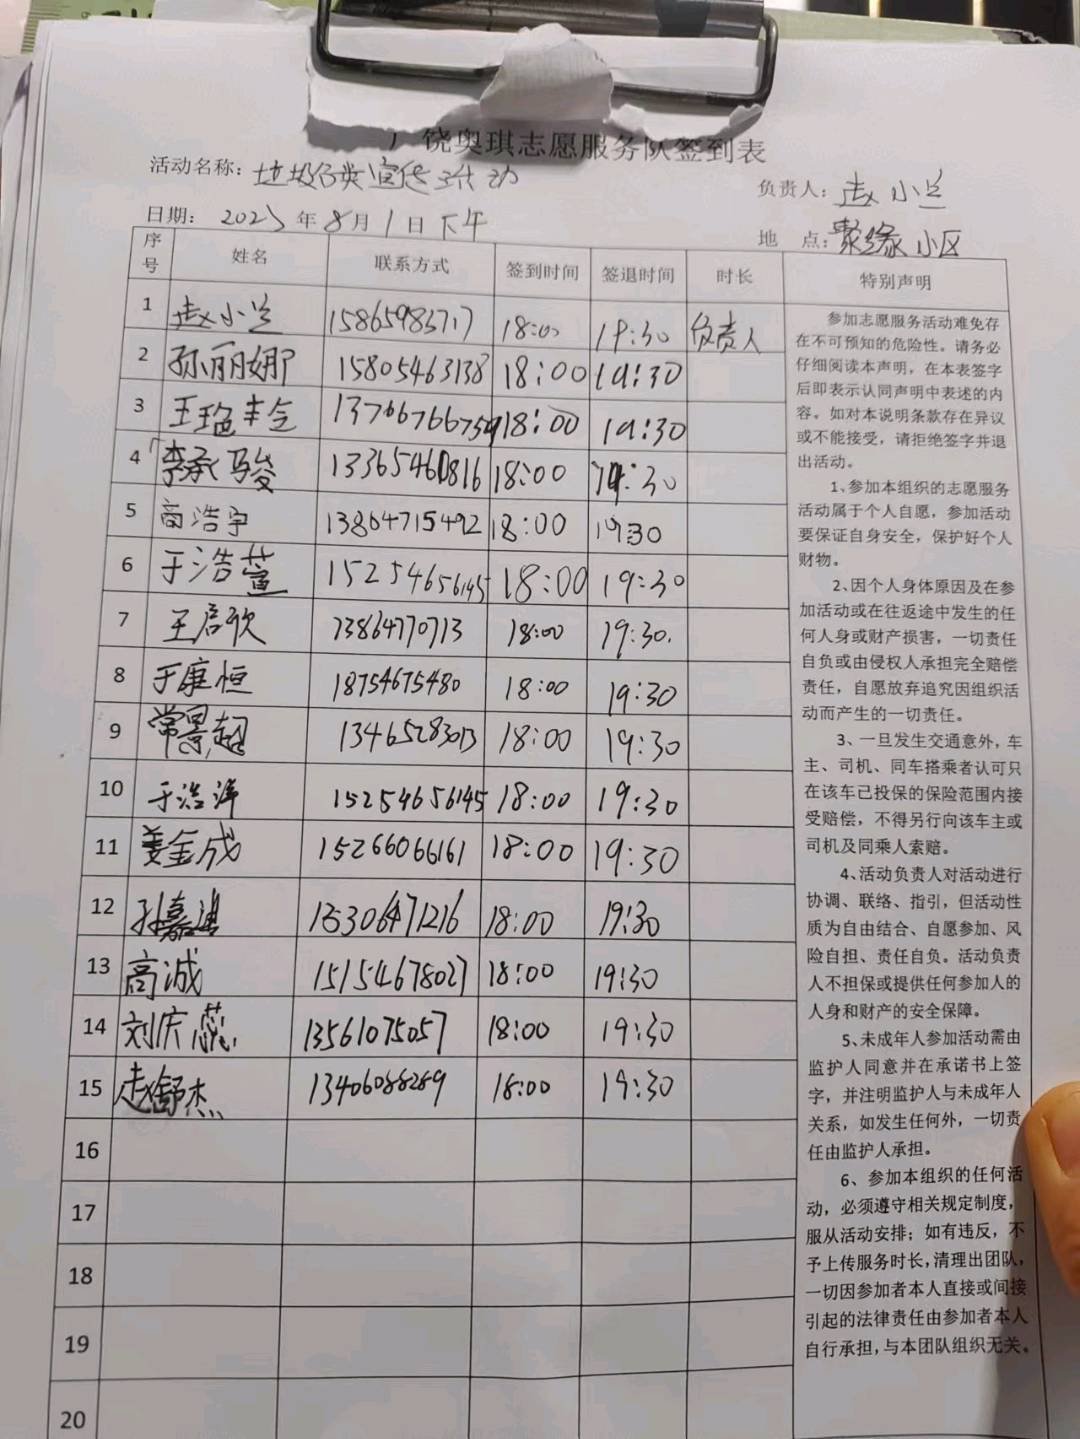 广饶奥琪志愿服务队签到表
活动名称：垃圾分类宣传活动
负责人：赵小兰
日期：2023年8月1日下午
地 点：聚缘小区
序号 姓名 联系方式 签到时间 签退时间 时长 特别声明
1 赵小兰 15865983717 18:00 19:30 负责人
2 孙丽娜 15805463138 18:00 19:30
3 王 18:00 19:30
4 李承骏 13365460816 18:00 19:30
5 商浩宇 13864715492 18:00 19:30
6 于浩萱 15254656145 18:00 19:30
7 王启欣 13864770713 18:00 19:30.
8 于康恒 18754675480 18:00 19:30
9 常景超 13465283013 18:00 19:30
10 于浩洋 15254656145 18:00 19:30
11 姜金成 15266066161 18:00 19:30
12 孙嘉 18:00 19:30
13 高诚 15154678027 18:00 19:30
14 刘庆蕊 13561075057 18:00 19:30
15 赵舒杰 13406088289 18:00 19:30
16
17
18
19
20
参加志愿服务活动难免存
在不可预知的危险性。请务必
仔细阅读本声明，在本表签字
后即表示认同声明中表述的内
容。如对本说明条款存在异议
或不能接受，请拒绝签字并退
出活动。
1、参加本组织的志愿服务
活动属于个人自愿，参加活动
要保证自身安全，保护好个人
财物。
2、因个人身体原因及在参
加活动或在往返途中发生的任
何人身或财产损害，一切责任
自负或由侵权人承担完全赔偿
责任，自愿放弃追究因组织活
动而产生的一切责任。
3、一旦发生交通意外，车
主、司机、同车搭乘者认可只
在该车已投保的保险范围内接
受赔偿，不得另行向该车主或
司机及同乘人索赔。
4、活动负责人对活动进行
协调、联络、指引，但活动性
质为自由结合、自愿参加、风
险自担、责任自负。活动负责
人不担保或提供任何参加人的
人身和财产的安全保障。
5、未成年人参加活动需由
监护人同意并在承诺书上签
字，并注明监护人与未成年人
关系，如发生任何外，一切责
任由监护人承担。
6、参加本组织的任何活
动，必须遵守相关规定制度，
服从活动安排；如有违反，不
予上传服务时长，清理出团队，
一切因参加者本人直接或间接
引起的法律责任由参加者本人
自行承担，与本团队组织无关。